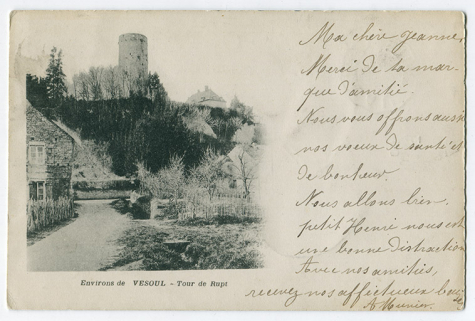 Ma chère Jeanne,
Merci de ta mar-
que d'amitié.
Nous vous offrons aussi
nos voeux de santé et
de bonheur.
Nous allons bien.
petit Henri nous est
une bonne distraction
Avec nos amitiés,
recevez nos affectueux
A Munier.
Environs de VESOUL - Tour de Rupt